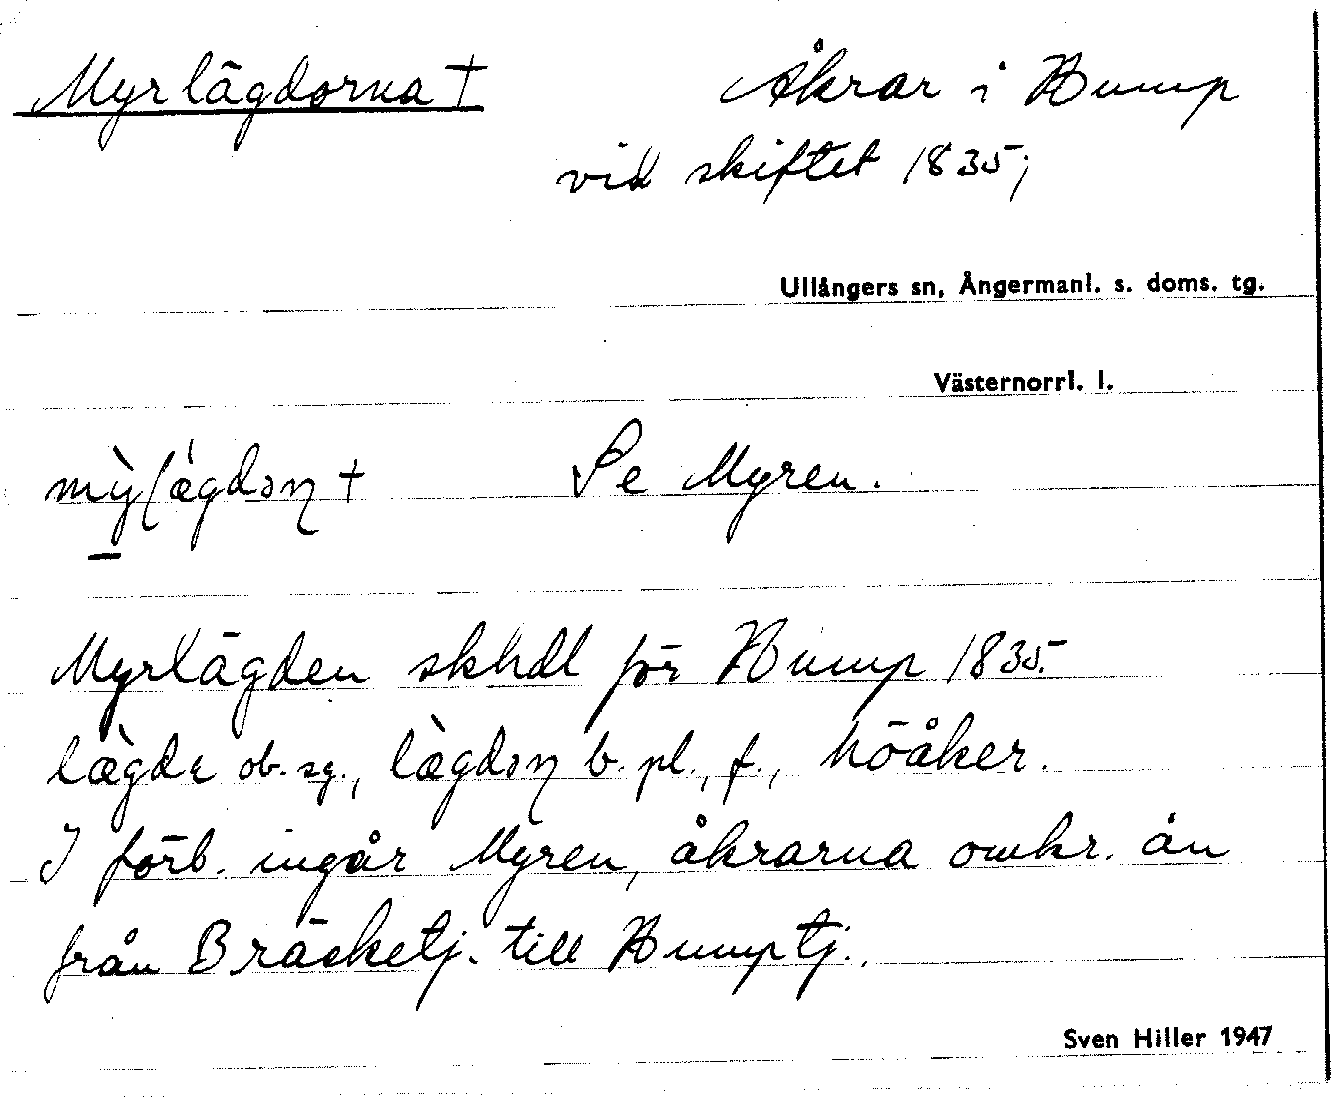 Myrlägdorna † Åkrar i Hump
vid skiftet 1835;
Ullångers sn, Ångermanl. s. doms. tg.
Västernorrl. l.
† Se Myren.
Myrlägden skhdl för Hump 1835.
ob. sg., b. pl., f., höåker.
I förb. ingår Myren, åkrarna omkr. ån
från Bräcketj. till Humptj.,
Sven Hiller 1947